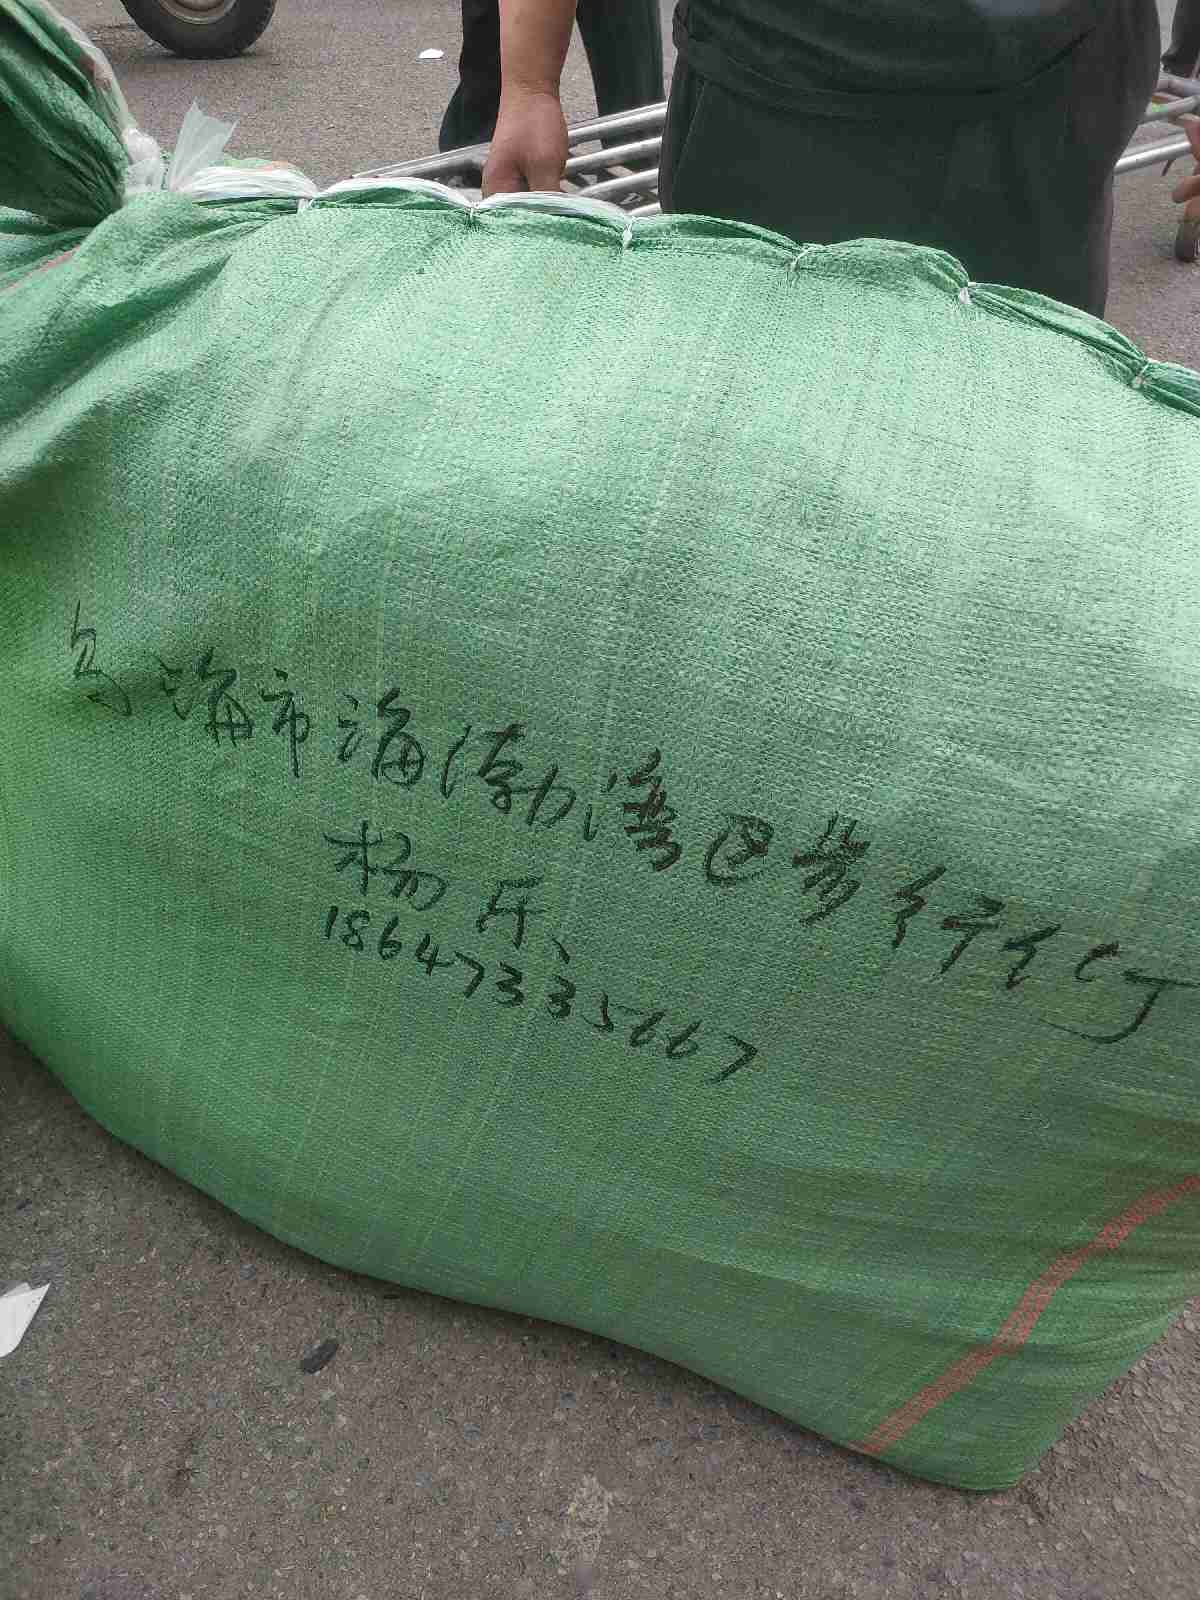 乌海市海渤湾区步行街
杨乐
18647335667